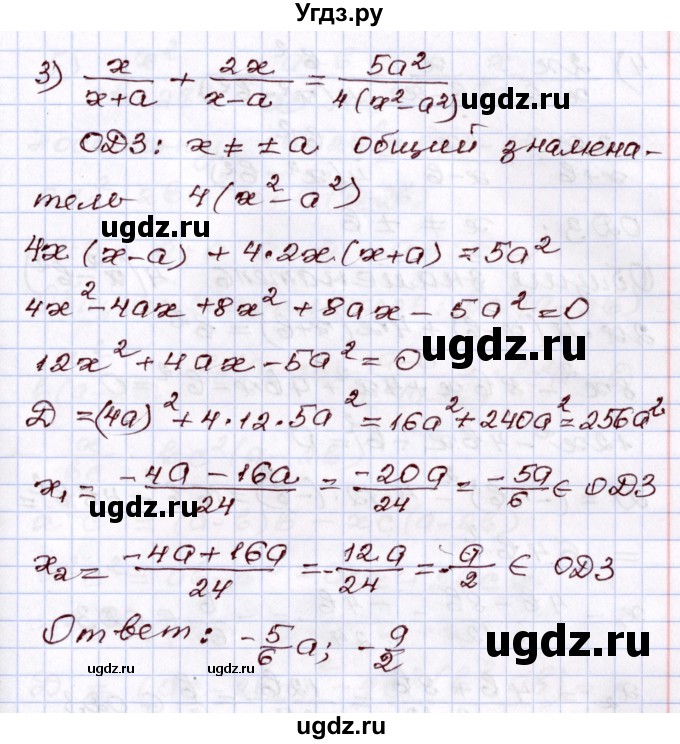 Угдз.ру
3) x/(x+a) + 2x/(x-a) = 5a²/(4(x²-a²))
ugdz.ru
ОДЗ: x ≠ ±a общий знамена-
тель 4(x²-a²)
4x(x-a) + 4·2x(x+a) = 5a²
4x²-4ax+8x²+8ax-5a²=0
12x²+4ax-5a²=0
ugdz.ru
Д =(4a)²+4·12·5a²=16a²+240a²=256a²
x₁ = (-4a-16a)/24 = -20a/24 = -5a/6 ∈ ОДЗ
ugdz.ru
ugdz.ru
x₂ = (-4a+16a)/24 = -12a/24 = -a/2 ∈ ОДЗ
Ответ: -5/6 a; -a/2
ugdz.ru
ugdz.ru
ugdz.ru
ugdz.ru